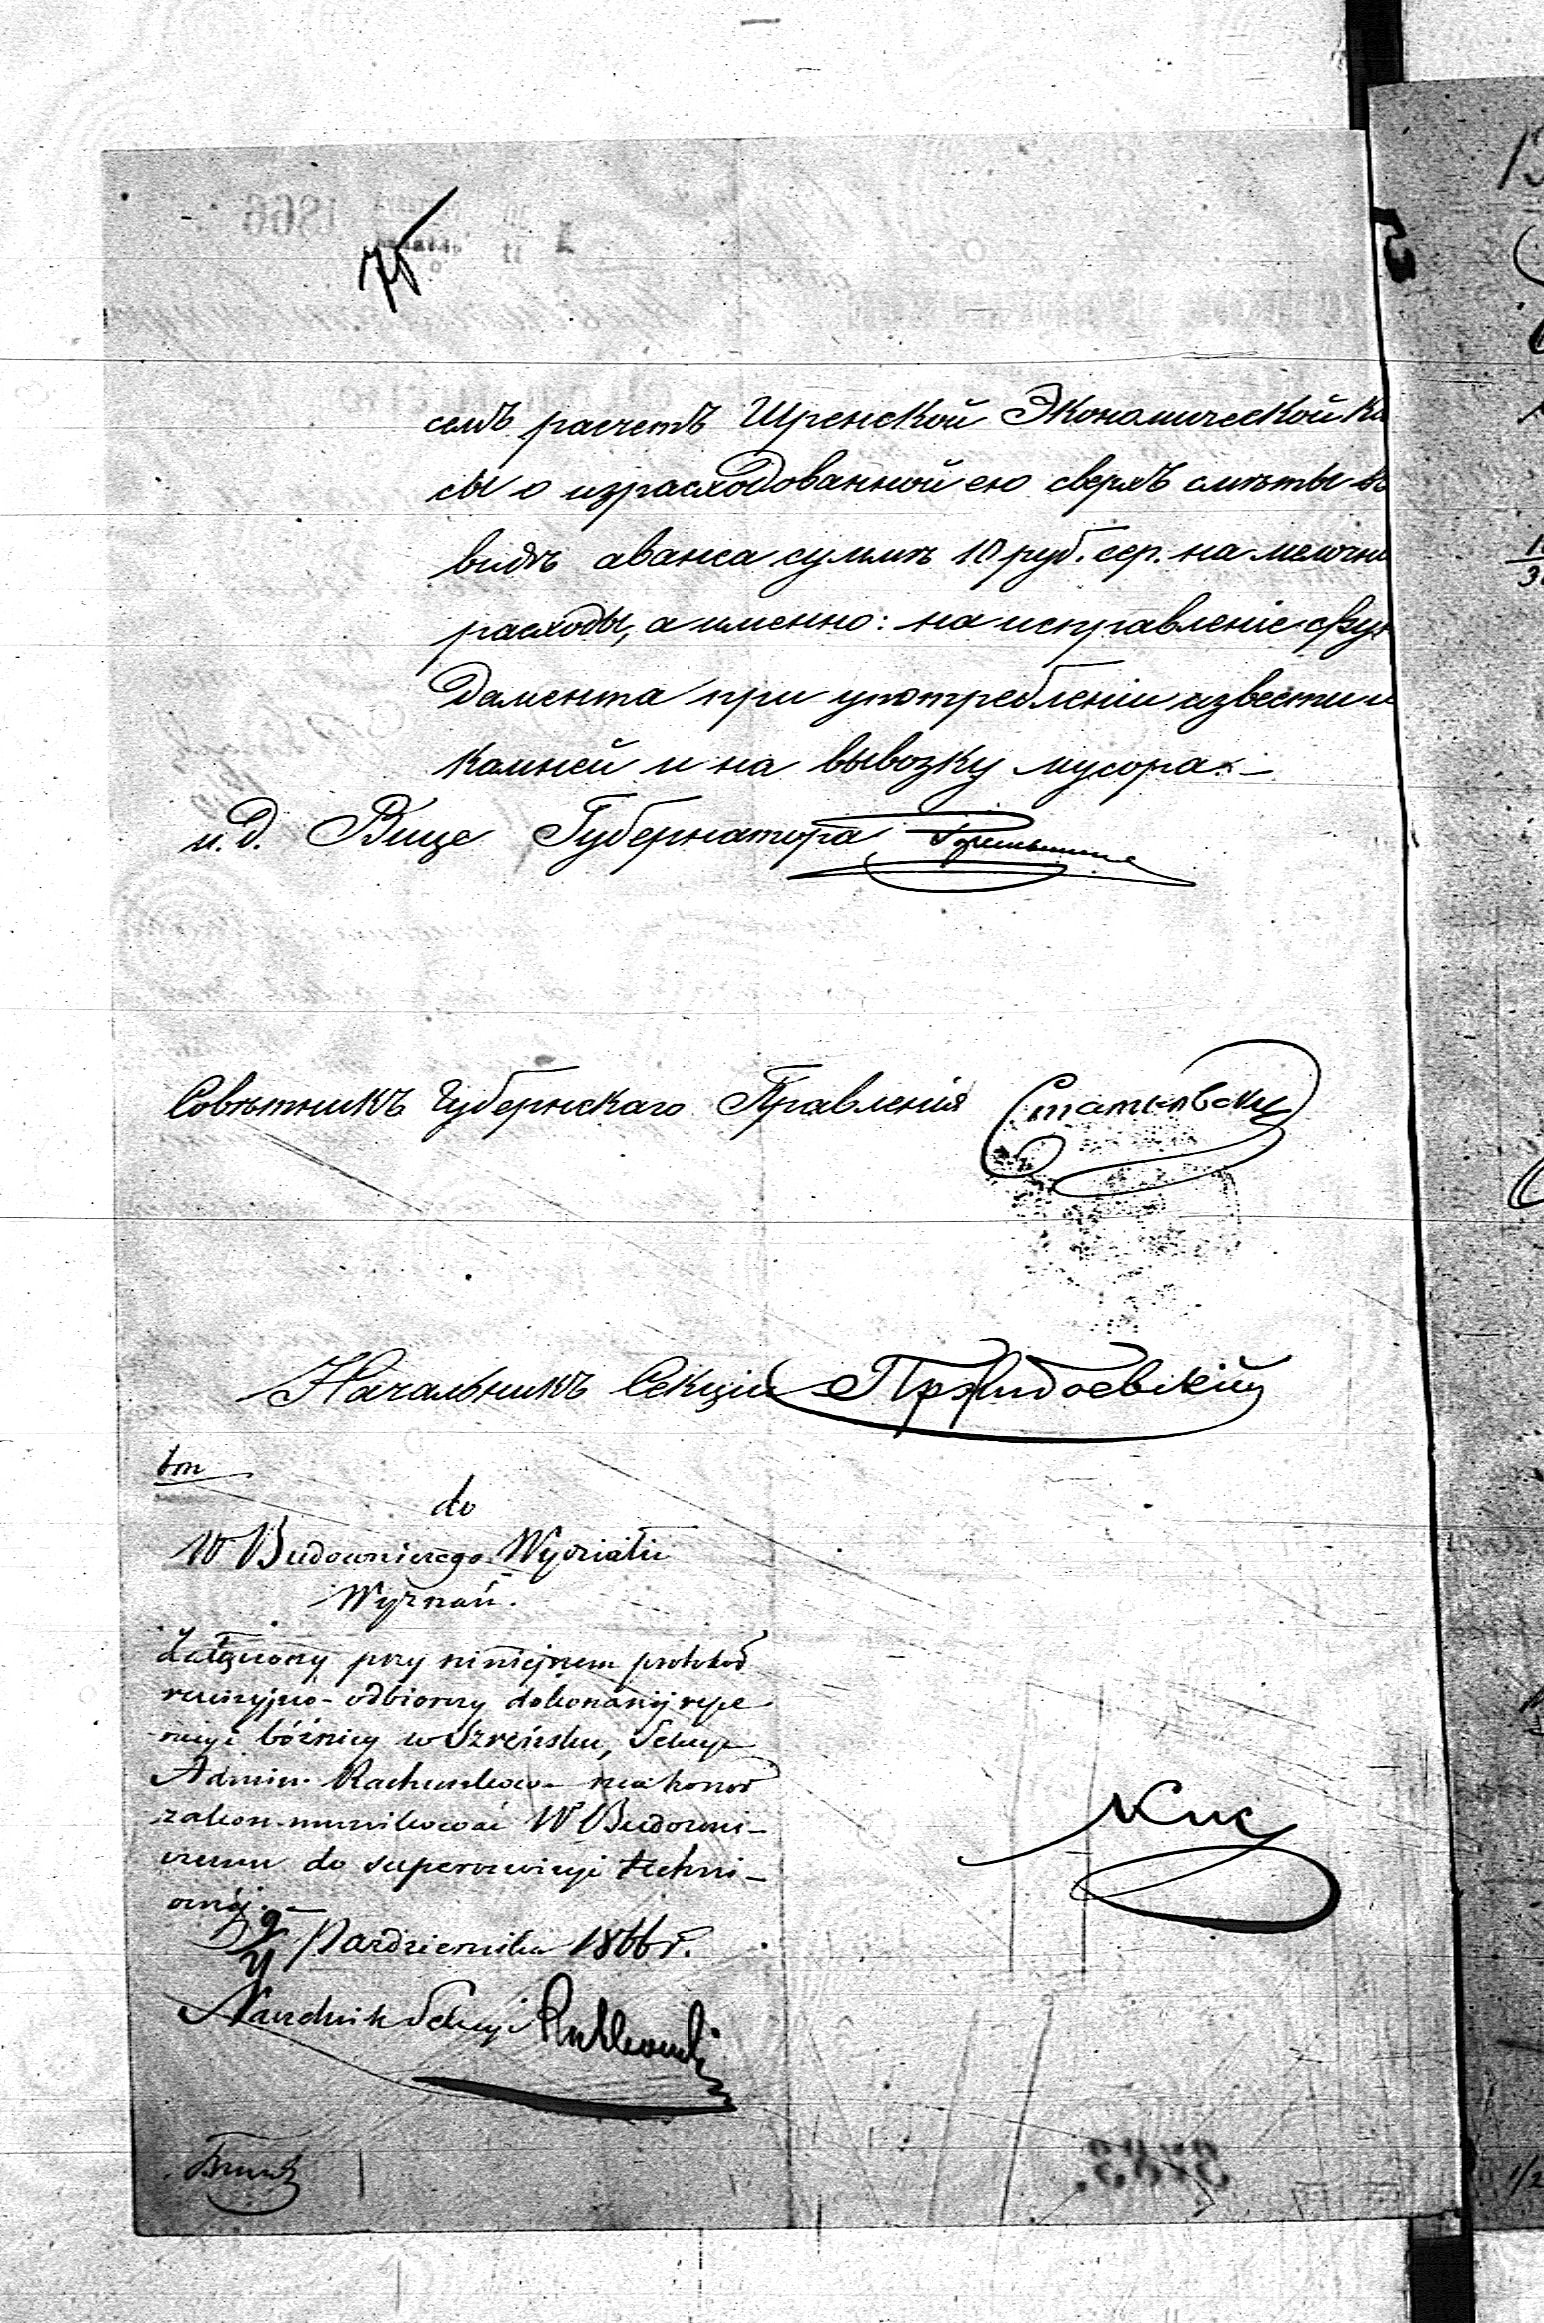 75
семъ расчетъ Шренской Экономической Ка
сы о израсходованной ею сверхъ смѣты въ
видѣ аванса суммѣ 10 руб. сер. на мелочны
расходы, а именно: на исправленіе фун
дамента при употребленіи извести и
камней и на вывозку мусора.
и. д. Вице Губернатора
Совѣтникъ Губернскаго Правленія
Начальникъ Секціи
do
W Budowniczego Wydziału
Wyznań.
Załączony przy niniejszem protokoł
rewizyjno-odbiorczy dokonanéj repe
racyi bóźnicy w Szreńsku, Sekcya
Admin. Rachunkowa ma honor
zakommunikować W Budowni-
czemu do superrewizyi techni-
cznéj.
9/21 Października 1866 r.
Naczelnik Sekcyi